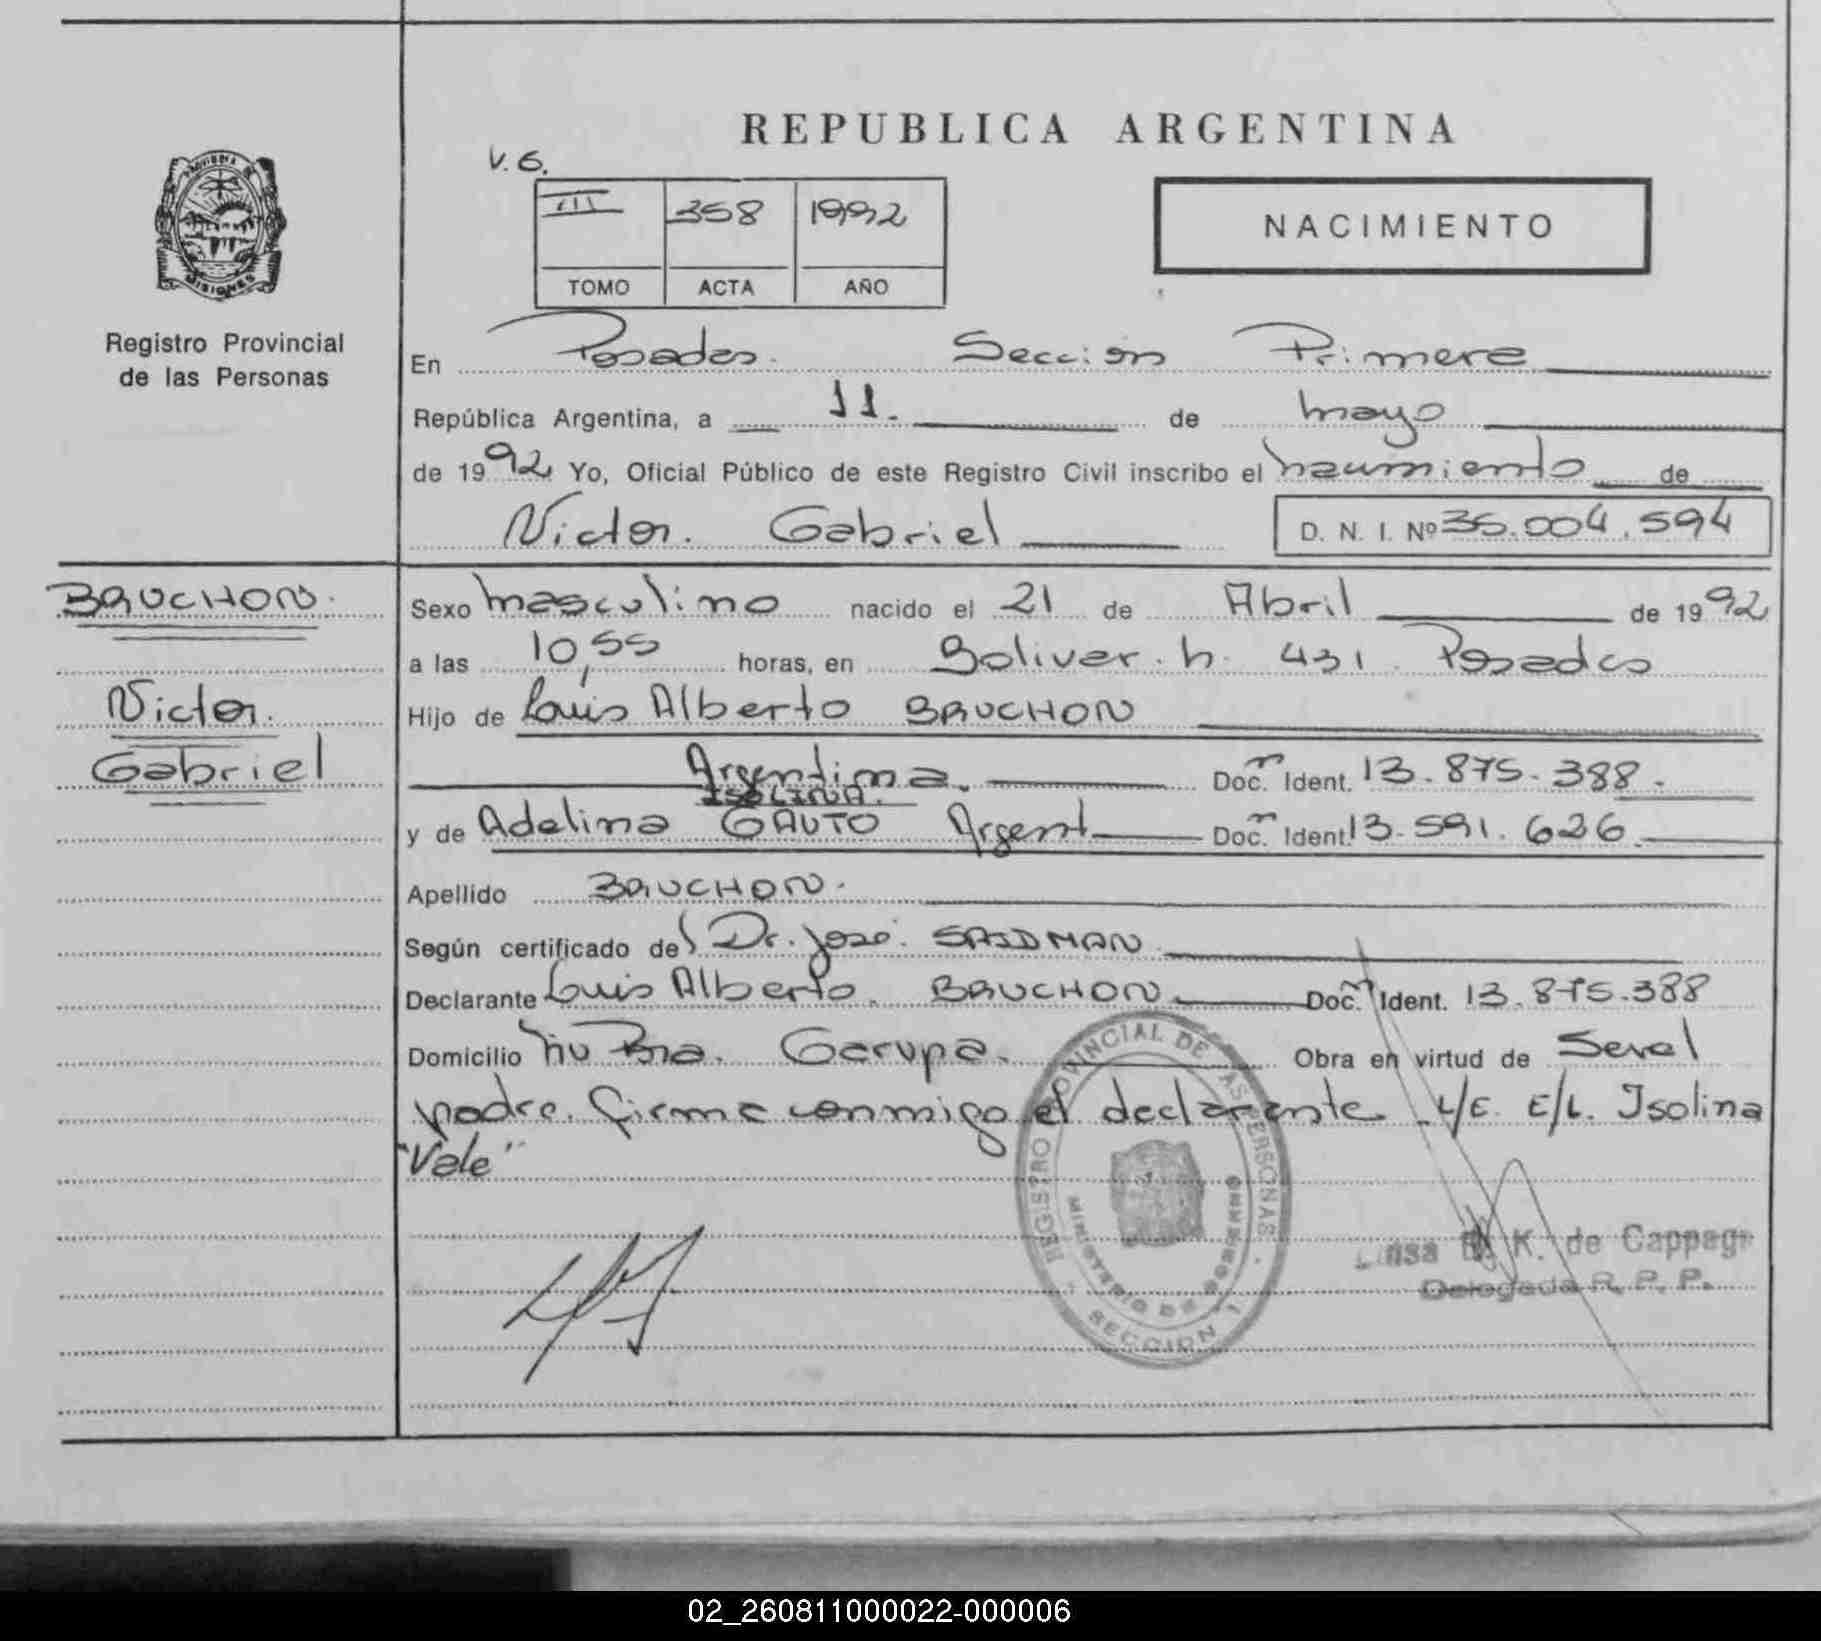 REPUBLICA ARGENTINA
V. G.
III 358 1992
TOMO ACTA AÑO
NACIMIENTO
PROVINCIA DE
MISIONES
Registro Provincial
de las Personas
En Posadas. Sección Primera
República Argentina, a 11. de mayo
de 1992 Yo, Oficial Público de este Registro Civil inscribo el nacimiento de
Victor. Gabriel D. N. I. Nº 36.004.594
BAUCHON.
Victor.
Gabriel
Sexo masculino nacido el 21 de Abril de 1992
a las 10,55 horas, en Bolivar. h. 431. Posadas
Hijo de Luis Alberto BAUCHON
Argentina. Doc. Ident. 13.875.388.
ISOLINA.
y de Adelina GAUTO Argent. Doc. Ident. 13.591.626.
Apellido BAUCHON.
Según certificado del Dr. José. SAIDMAN
Declarante Luis Alberto. BAUCHON. Doc. Ident. 13.875.388
Domicilio Garupa. Obra en virtud de Seral
padre. firma conmigo el declarante. L/E. E/L. Isolina
"Vale"
REGISTRO PROVINCIAL DE LAS PERSONAS
MINISTERIO DE GOBIERNO
SECCION 1
K. de Cappagi
Delegada R. P. P.
02_260811000022-000006